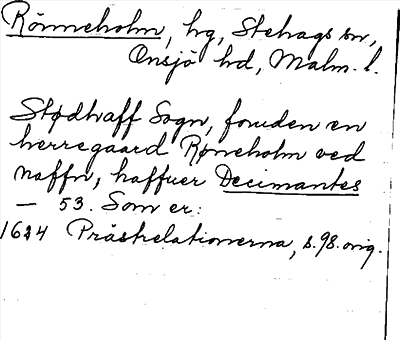 Rönneholm, hg, Stehags sn,
Onsjö hd, Malm. l.
Stødhaff Sogn, foruden en
herregaard Røneholm ved
naffn, haffuer Decimantes
— 53. Som er:
1624 Prästrelationerna, s. 98. orig.